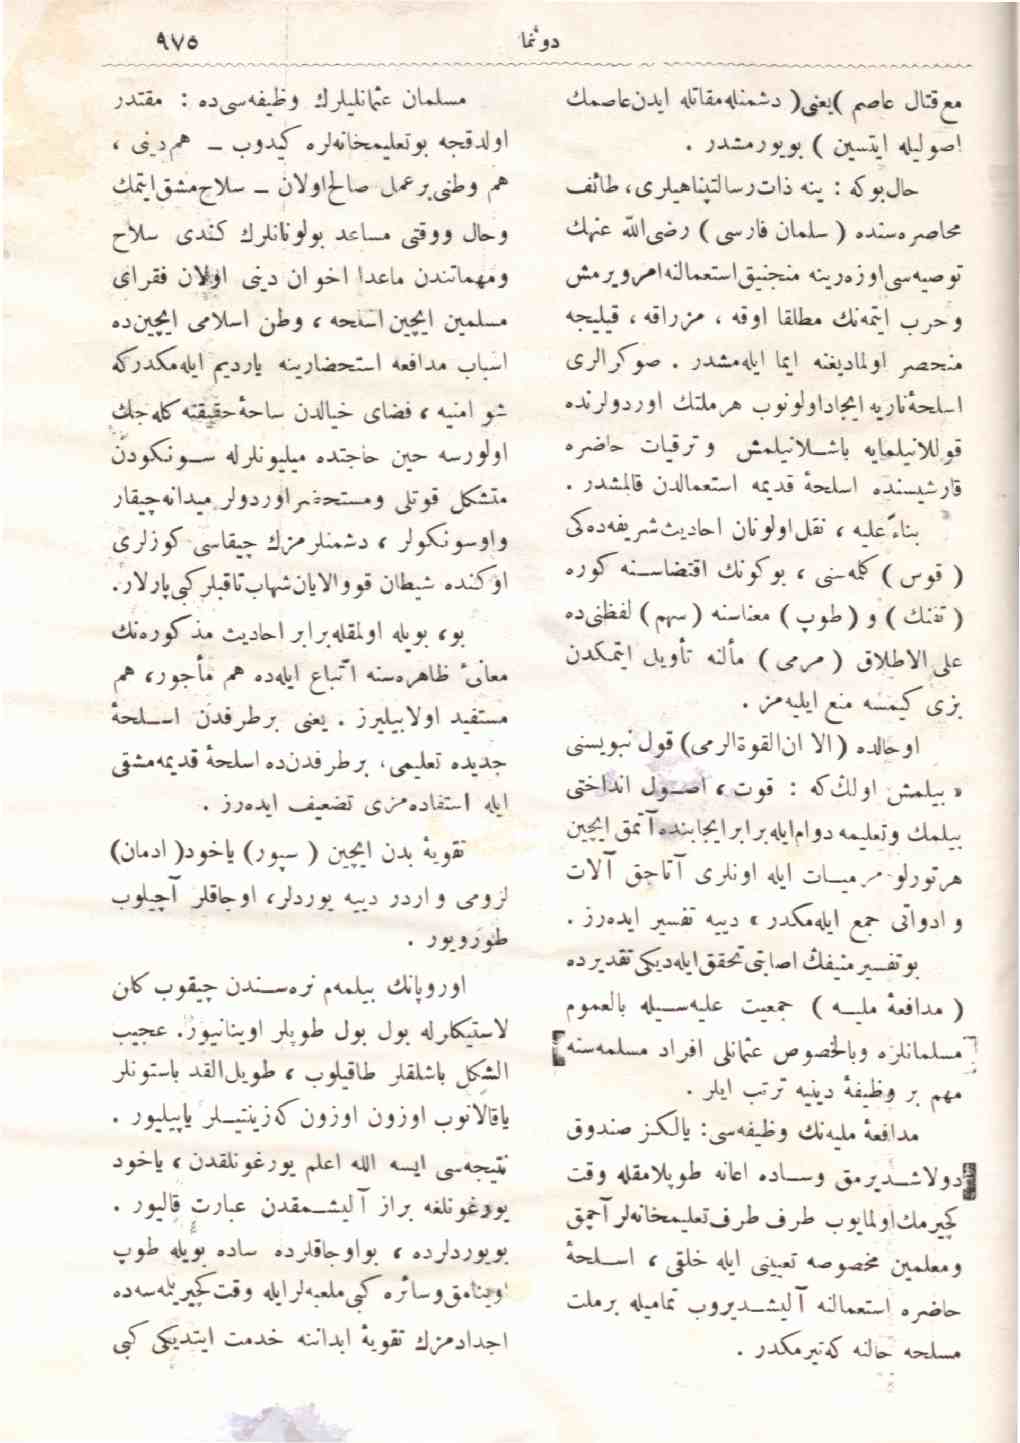 دوننما
٩٧٥
مع قتال عاصم )یعنی( دشمنله مقاتله ایدن عاصمك
اصولیله ایتسین ) بویورمشدر .
حال بوكه : ینه ذات رسالتپناهیلری، طائف
محاصره سنده ( سلمان فارسی ) رضی الله عنهك
توصیه سی اوزه رینه منجنیق استعمالنه امر ویرمش
وحرب ایتمه نك مطلقا اوقه ، مزراقه ، قیلیجه
منحصر اولمادیغنه ایما ایله مشدر . صوكرالری
اسلحۀ ناریه ایجاد اولونوب هر ملتك اوردولرنده
قوللانیلمایه باشـلانیلمش وترقیات حاضره
قارشیسنده اسلحۀ قدیمه استعمالدن قالمشدر .
بناءً علیه ، نقل اولونان احادیث شریفه ده كی
( قوس ) كلمه سنی ، بوكونك اقتضاسـنه كوره
( تفنك ) و ( طوپ ) معناسنه ( سهم ) لفظنی ده
علی الاطلاق ( مرمی ) مألنه تأویل ایتمكدن
بزی كیمسه منع ایلیه مز .
اوحالده (الا ان القوة الرمی) قول نبویسنی
« بیلمش اولك كه : قوت ، اصـول انداختی
بیلمك وتعلیمه دوام ایله برابر ایجابنده آتمق ایچین
هر تورلو مرمیـات ایله اونلری آتاجق آلات
وادواتی جمع ایله مكدر » دییه تفسیر ایده رز .
بو تفسیر منیفك اصابتی تحقق ایله دیكی تقدیرده
( مدافعۀ ملیـه ) جمعیت علیه سـیله بالعموم
مسلمانلره وبالخصوص عثمانلی افراد مسلمه سنه
مهم بر وظیفۀ دینیه ترتب ایلر .
مدافعۀ ملیه نك وظیفه سی: یالكـز صندوق
دولاشـدیرمق وسـاده اعانه طوپلامقله وقت
كچیرمك اولمایوب طرف طرف تعلیمخانه لر آچمق
ومعلمین مخصوصه تعیینی ایله خلقی ، اسـلحۀ
حاضره استعمالنه آلیشـدیروب تمامیله بر ملت
مسلحه حالنه كه تیرمكدر .
مسلمان عثمانلیلرك وظیفه سی ده : مقتدر
اولدقجه بو تعلیمخانه لره كیدوب – هم دینی ،
هم وطنی بر عمل صالح اولان – سلاح مشق ایتمك
وحال ووقتی مساعد بولونانلرك كندی سلاح
ومهماتندن ماعدا اخوان دینی اولان فقرای
مسلمین ایچین اسلحه ، وطن اسلامی ایچین ده
اسباب مدافعه استحضارینه یاردیم ایله مكدر كه
شو امنیه ، فضای خیالدن ساحۀ حقیقته كله جك
اولورسه حین حاجتده میلیونلرله سـونكودن
متشكل قوتلی ومستحضر اوردولر میدانه چیقار
واوسونكولر ، دشمنلرمزك چیقاسی كوزلری
اوكنده شیطان قووالایان شهاب ثاقبلر كبی پارلار.
بو، بویله اولمقله برابر احادیث مذكوره نك
معانیٔ ظاهره سنه اتّباع ایله ده هم مأجور، هم
مستفید اولابیلیرز . یعنی بر طرفدن اسـلحۀ
جدیده تعلیمی، بر طرفدن ده اسلحۀ قدیمه مشقی
ایله استفاده مزی تضعیف ایده رز .
تقویۀ بدن ایچین ( سپور) یاخود( ادمان)
لزومی واردر دییه یوردلر، اوجاقلر آچیلوب
طورویور .
اوروپانك بیلمه م نره سـندن چیقوب كلن
لاستیكلرله بول بول طوپلر اوینانیور. عجیب
الشكل باشلقلر طاقیلوب ، طویل القد باستونلر
یاقالانوب اوزون اوزون كه زینتیـلر یاپیلیور .
نتیجه سی ایسه الله اعلم یورغونلقدن ، یاخود
یورغونلغه براز آلیشـمقدن عبارت قالیور .
بویوردلرده ، بواوجاقلرده ساده بویله طوپ
اوینامق وسائره كبی ملعبه لر ایله وقت كچیریلمه سه ده
اجدادمزك تقویۀ ابداننه خدمت ایتدیكی كبی